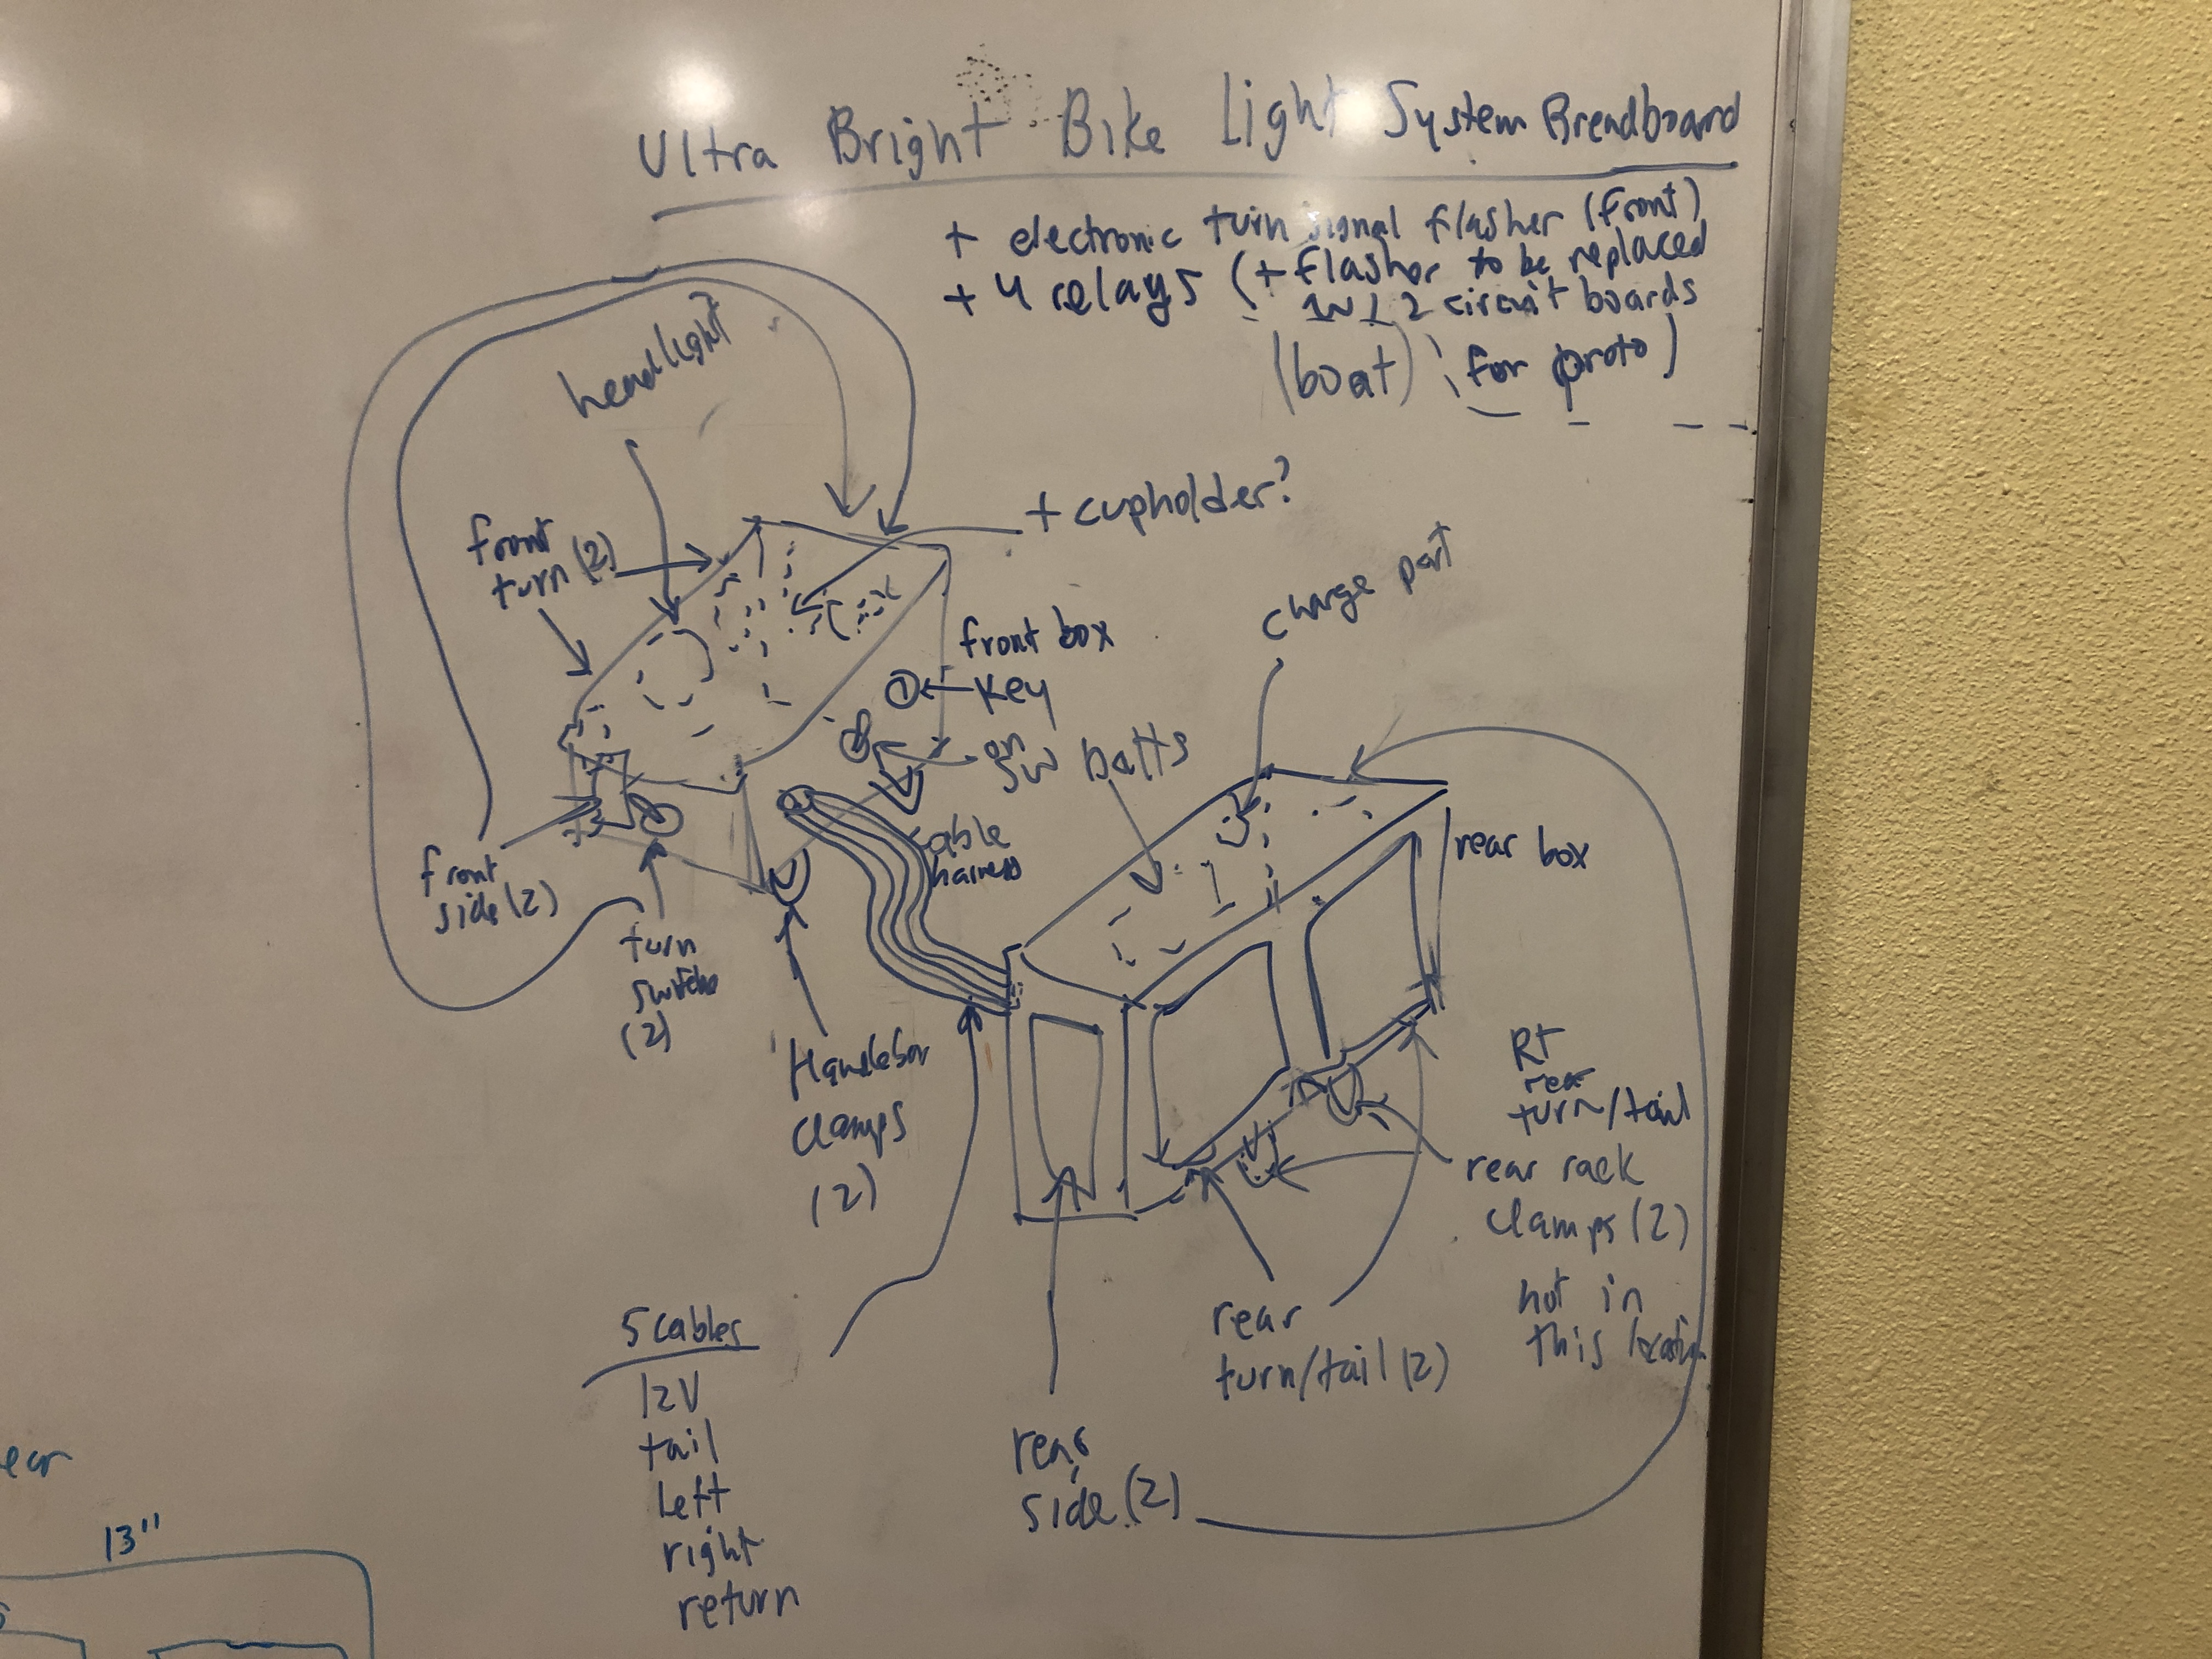 Ultra Bright Bike Light System Breadboard
+ electronic turn signal flasher (front)
+ 4 relays (+ flasher to be replaced
w/ 2 circuit boards
(boat) for proto)
headlight
+ cupholder?
front
turn (2)
charge port
front box
key
on
sw
batts
cable
harness
rear box
front
side (2)
turn
switches
(2)
Handlebar
clamps
(2)
Rt
rear
turn/tail
rear rack
clamps (2)
not in
this location
rear
turn/tail (2)
5 cables
12V
tail
left
right
return
rear
side (2)
ear
13"